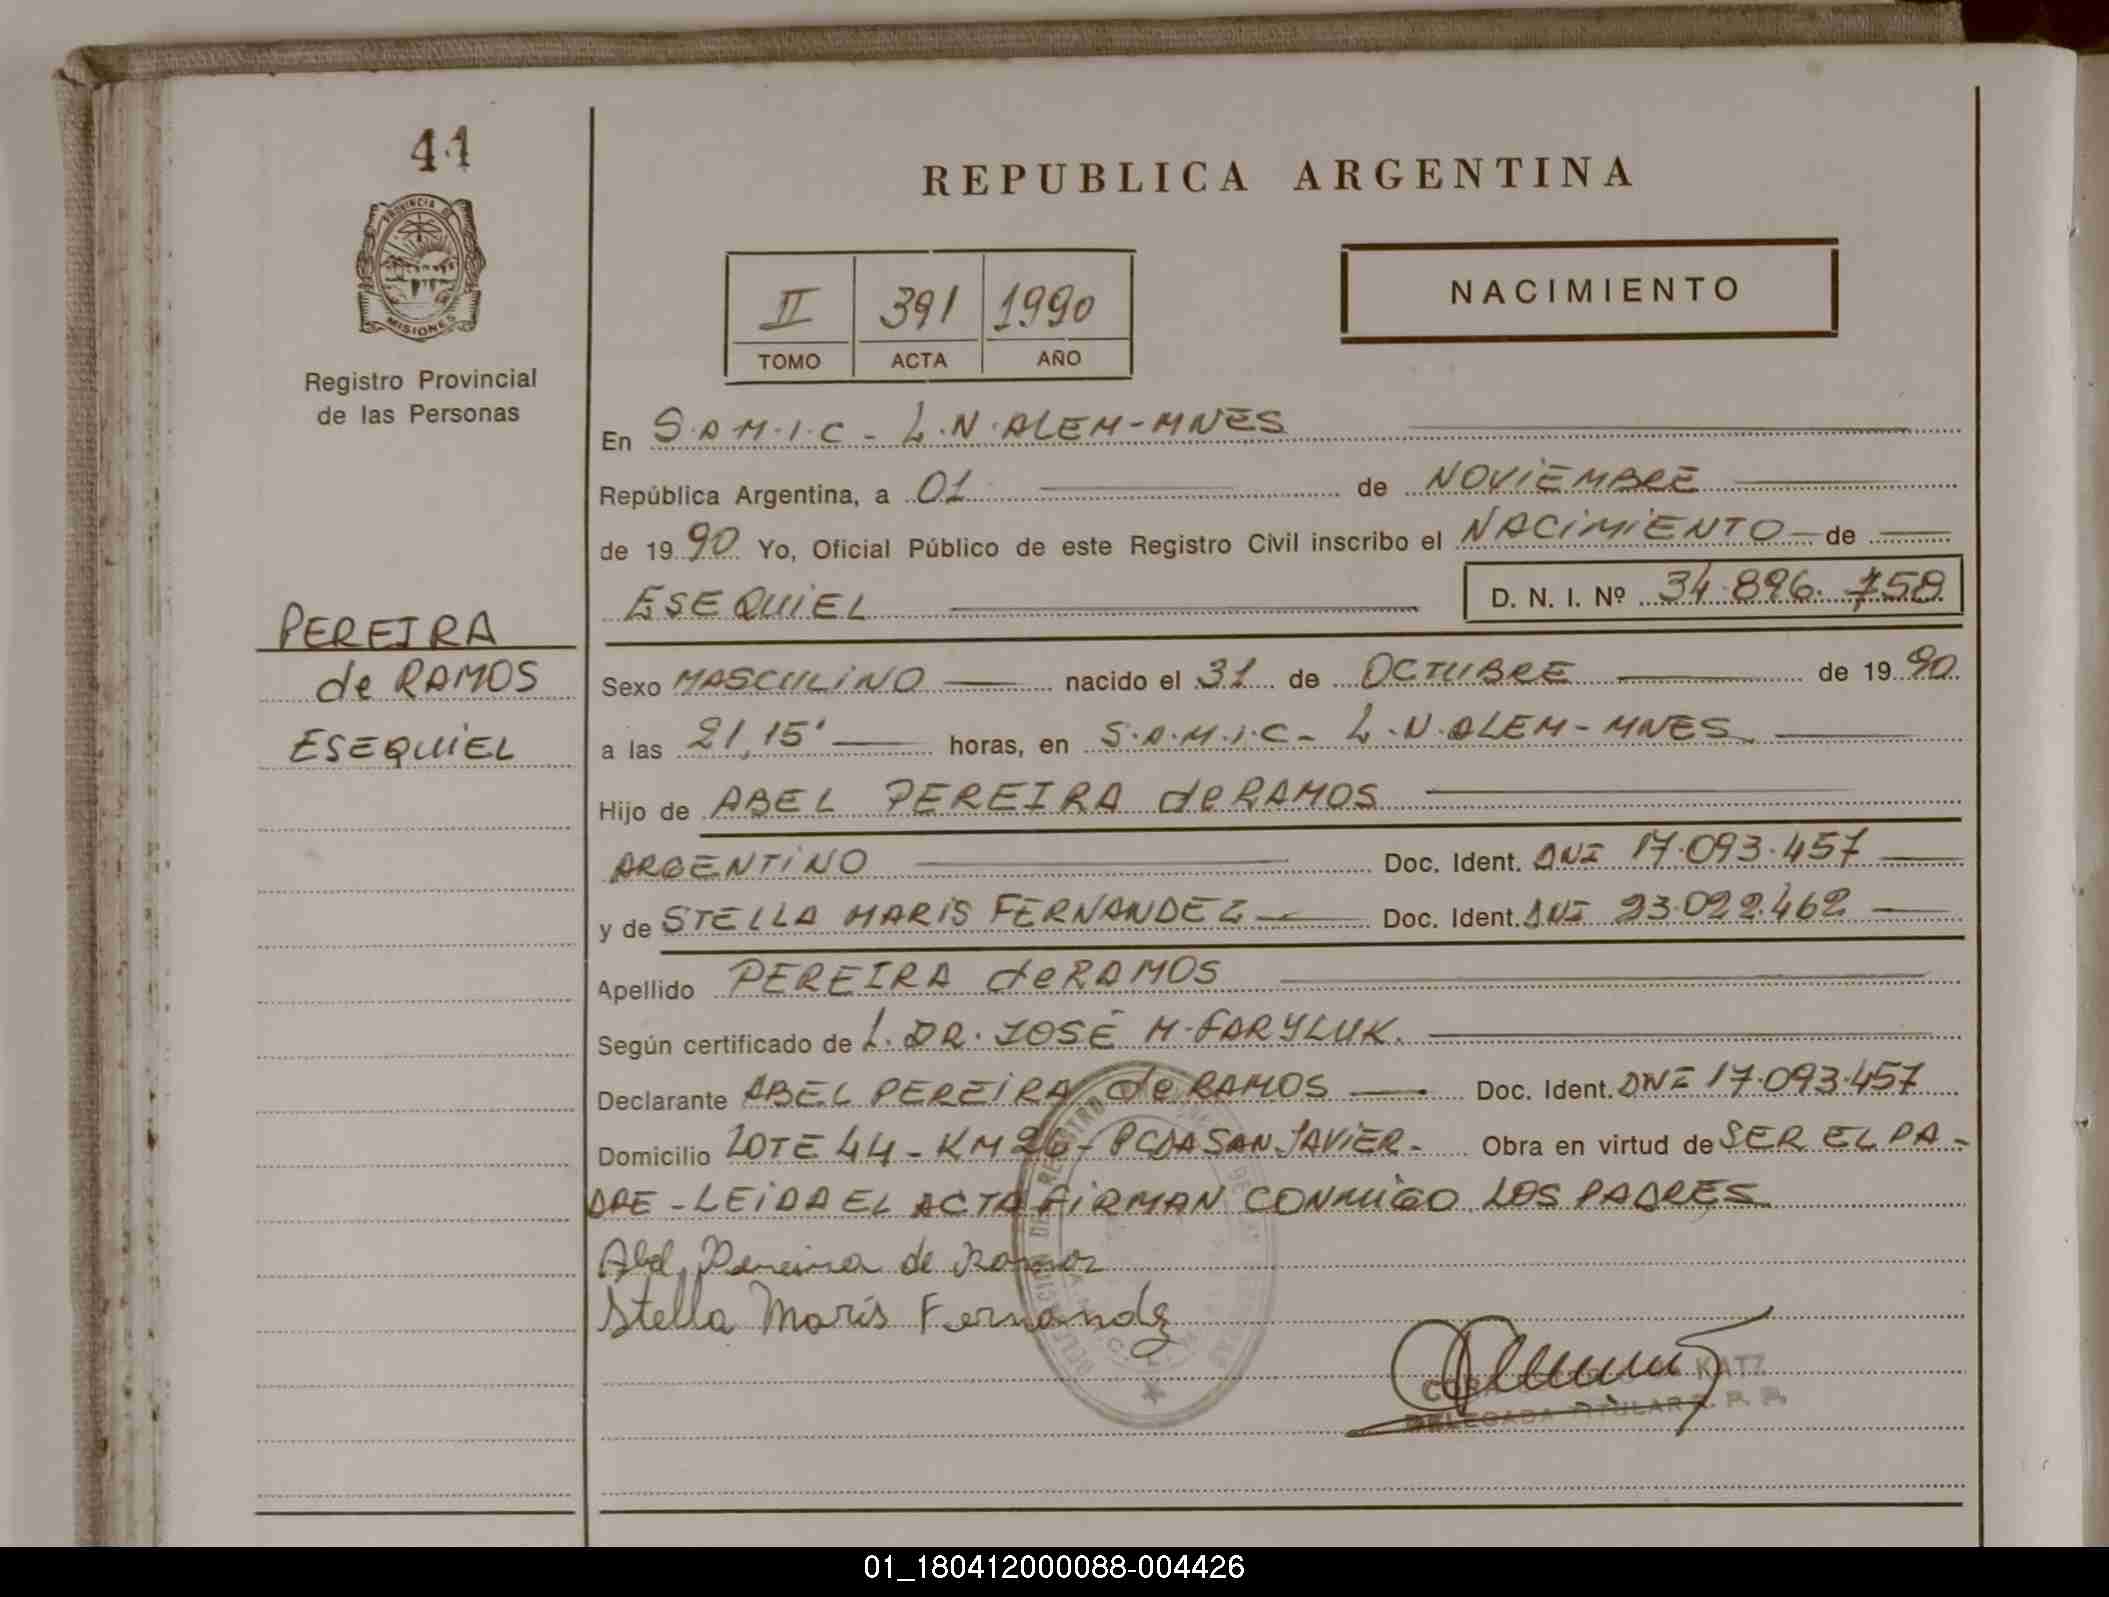 41
PROVINCIA DE
MISIONES
Registro Provincial
de las Personas
PEREIRA
de RAMOS
ESEQUIEL
REPUBLICA ARGENTINA
II 391 1990
TOMO ACTA AÑO
NACIMIENTO
En S.A.M.I.C - L.N.ALEM-MNES
República Argentina, a 01 de NOVIEMBRE
de 1990 Yo, Oficial Público de este Registro Civil inscribo el NACIMIENTO de
ESEQUIEL D. N. I. Nº 34.896.758
Sexo MASCULINO nacido el 31 de OCTUBRE de 1990
a las 21,15' horas, en S.A.M.I.C - L.N.ALEM-MNES
Hijo de ABEL PEREIRA de RAMOS
ARGENTINO Doc. Ident. DNI 17.093.457
y de STELLA MARIS FERNANDEZ Doc. Ident. DNI 23.022.462
Apellido PEREIRA de RAMOS
Según certificado de L. DR. JOSÉ M. FARYLUK.
Declarante ABEL PEREIRA de RAMOS Doc. Ident. DNI 17.093.457
Domicilio LOTE 44 - KM 26 - PCDA SAN JAVIER - Obra en virtud de SER EL PA-
DRE - LEIDA EL ACTA FIRMAN CONMIGO LOS PADRES
Abel Pereira de Ramos
Stella Maris Fernandez
KATZ
DELEGADA TITULAR R. P. P.
01_180412000088-004426